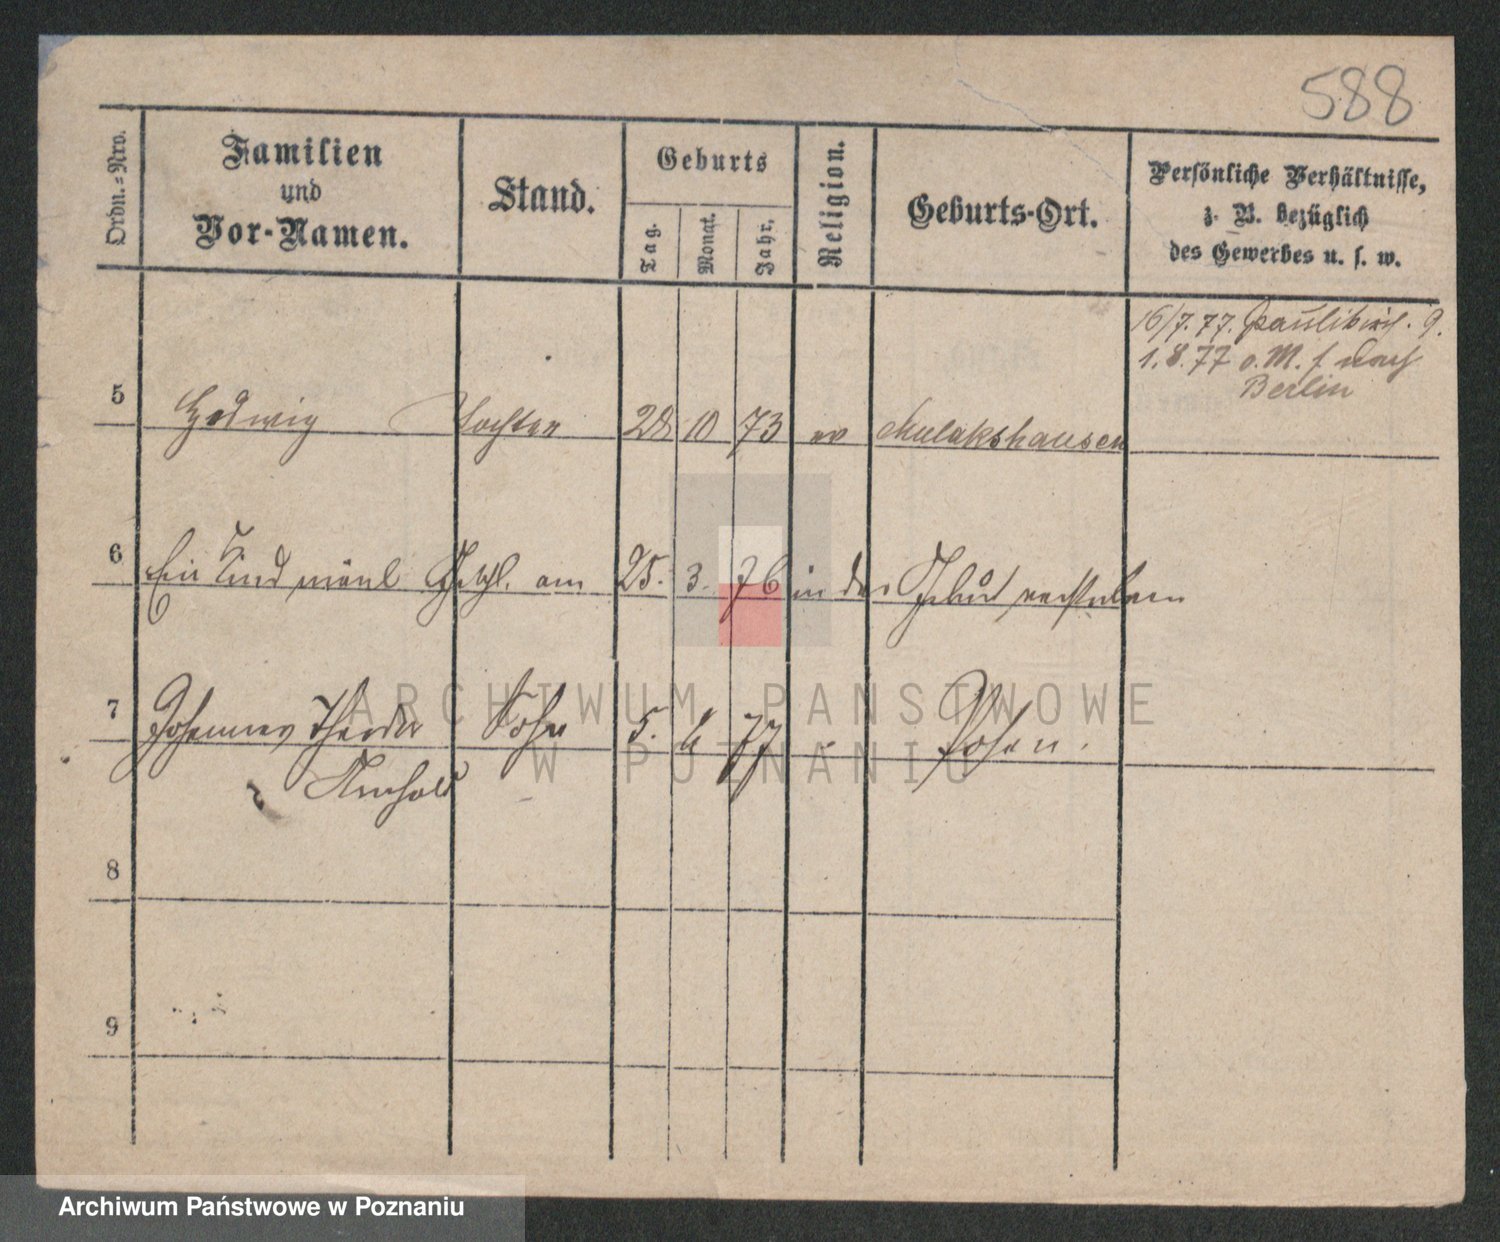 588
Ordn.-Nro.
Familien
und
Vor-Namen.
Stand.
Geburts
Tag.
Monat.
Jahr.
Religion.
Geburts-Ort.
Persönliche Verhältnisse,
z. B. bezüglich
des Gewerbes u. s. w.
16/7.77. Paulikirch. 9.
1.8.77 o. M. f nach
Berlin
5 Hedwig Tochter 28 10 73 ev Mulakshausen
6 Ein Kind männl Geschl. am 25. 3. 76 in der Geburt verstorben
7 Johannes Theodor Sohn 5. 6 77 Posen.
8
9
ARCHIWUM PAŃSTWOWE
W POZNANIU
Archiwum Państwowe w Poznaniu